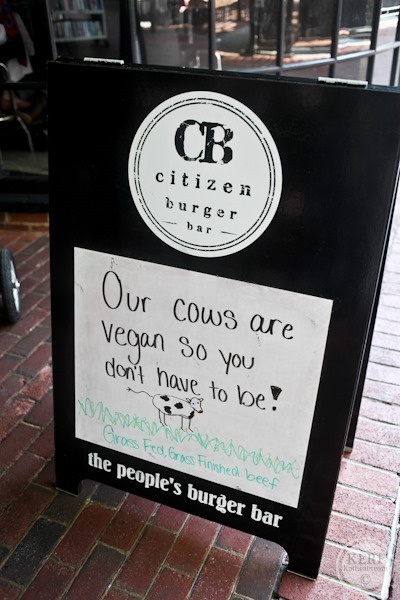 CB
citizen
burger
bar
Our cows are
vegan so you
don't have to be!
Grass Fed, Grass Finished beef
the people's burger bar